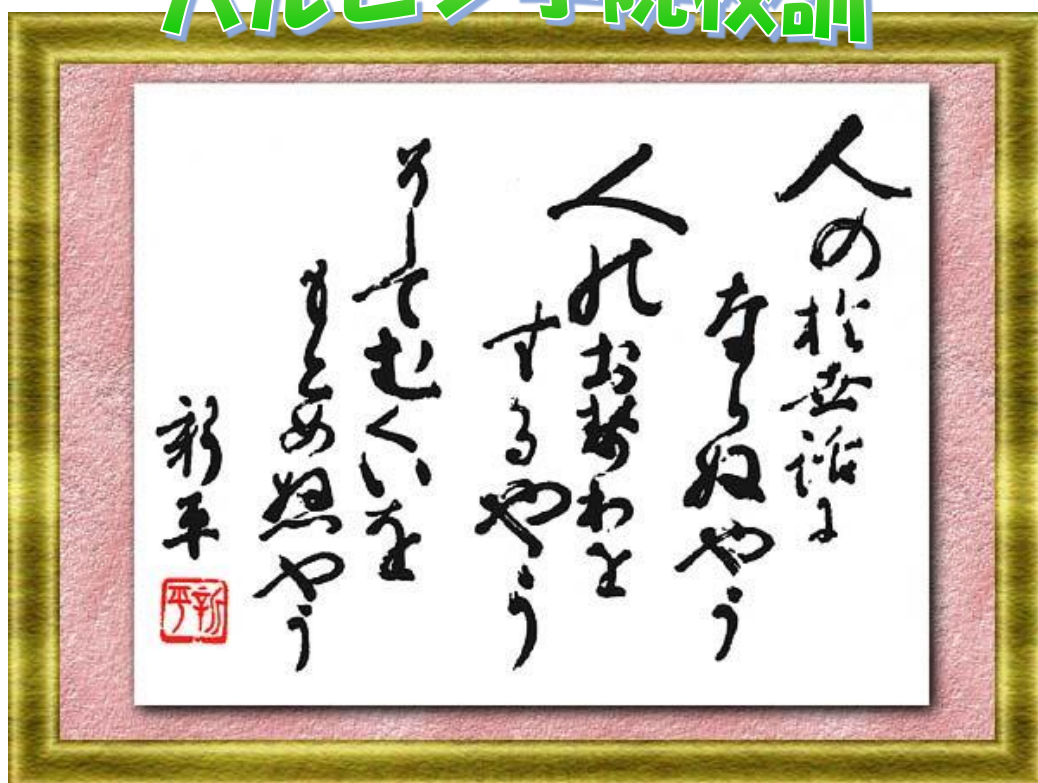 ハルビン学院校訓
人のお世話に
ならぬやう
人のお世わを
するやう
そしてむくいを
もとめぬやう
新平
新平